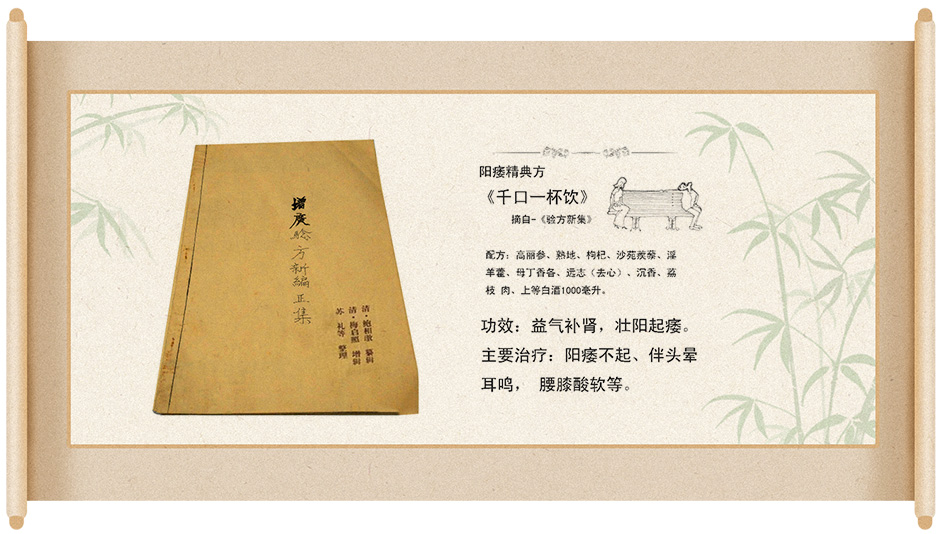 增广验方新编正集
清·鲍相璈 纂辑
清·梅启照 增辑
苏 礼等 整理
阳痿精典方
《千口一杯饮》
摘自-《验方新集》
配方：高丽参、熟地、枸杞、沙苑蒺藜、淫
羊藿、母丁香各、远志（去心）、沉香、荔
枝 肉、上等白酒1000毫升。
功效：益气补肾，壮阳起痿。
主要治疗：阳痿不起、伴头晕
耳鸣， 腰膝酸软等。